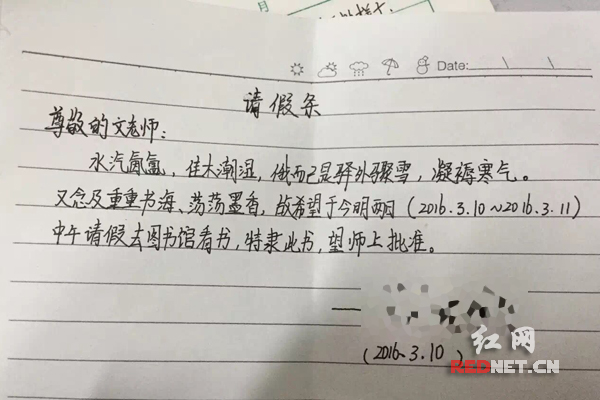 月
Date:
请假条
尊敬的文老师:
水汽氤氲,佳木潮湿,俄而已是驿外骤雪,凝褥寒气。
又念及重重书海、荡荡墨香,故希望于今明两日(2016.3.10~2016.3.11)
中午请假去图书馆看书,特隶此书,望师上批准。
(2016.3.10)
红网
REDNET.CN